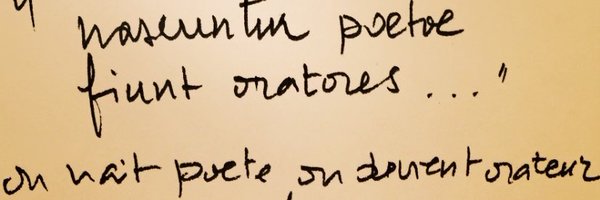 "nascuntur poetae
fiunt oratores ..."
on nait poete, on devient orateur